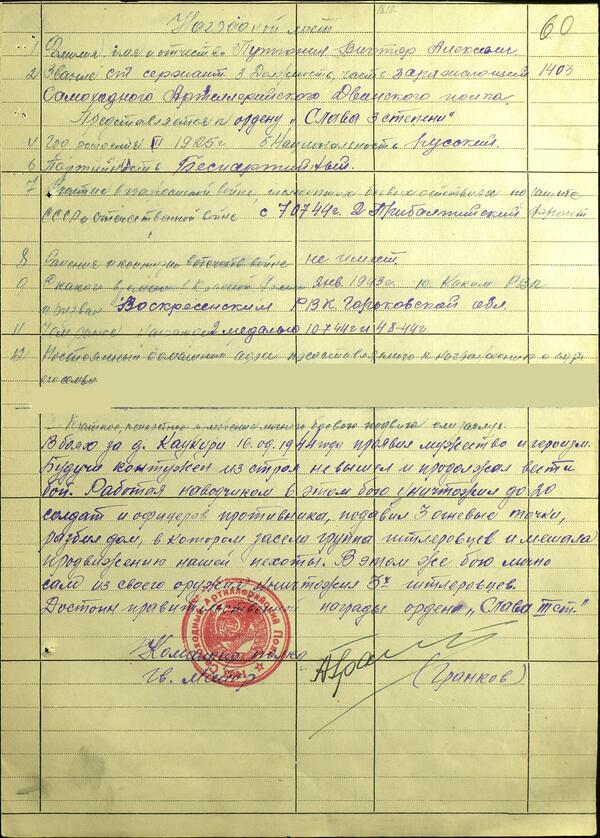 60
Наградной лист
1 Фамилия, имя и отчество Виктор
2 Звание ст сержант 3 Должность, часть заряжающий 1403
Самоходного Артиллерийского Двинского полка.
Представляется к ордену „Славы 3 степени"
4 Год рождения 1925 г. 5 Национальность Русский.
6 Партийность Беспартийный.
7 Участие в гражданской войне, боевых действиях по защите
СССР и отечественной войне с 10744г. 2 Прибалтийский фронт
8 Ранения и контузии в отечеств войне не имеет.
9 С какого времени в Красной Армии янв. 1943 г. 10. Каким РВК
призван Воскресенским РВК. Горьковской обл.
11 Чем ранее награжден 2 медалью 10744г и 48-44г.
12 Постоянный домашний адрес представляемого к награждению и адр
его семьи
Краткое, конкретное изложение личного боевого подвига или заслуг.
В боях за д. Каукури 16.09.1944 года проявил мужество и героизм.
Будучи контужен из строя не вышел и продолжал вести
бой. Работая наводчиком в этом бою уничтожил до 20
солдат и офицеров противника, подавил 3 огневые точки,
разбил дом, в котором засела группа гитлеровцев и мешала
продвижению нашей пехоты. В этом же бою лично
сам из своего оружия уничтожил 3х гитлеровцев.
Достоин правительственной награды орден „Слава IIIст."
Командир полка
Гв. Майор (Гранков)